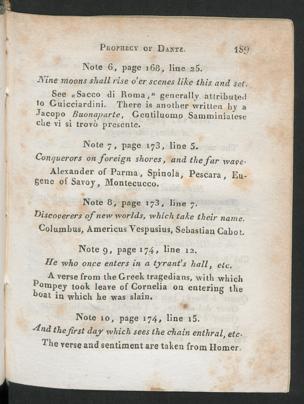 PROPHECY OF DANTE. 189
Note 6, page 168, line 25.
Nine moons shall rise o'er scenes like this and set.
See „Sacco di Roma," generally attributed
to Guicciardini. There is another written by a
Jacopo Buonaparte, Gentiluomo Samminiatese
che vi si trovò presente.
Note 7, page 173, line 5.
Conquerors on foreign shores, and the far wave.
Alexander of Parma, Spinola, Pescara, Eu-
gene of Savoy, Montecucco.
Note 8, page 173, line 7.
Discoverers of new worlds, which take their name.
Columbus, Americus Vespusius, Sebastian Cabot.
Note 9, page 174, line 12.
He who once enters in a tyrant's hall, etc.
A verse from the Greek tragedians, with which
Pompey took leave of Cornelia on entering the
boat in which he was slain.
Note 10, page 174, line 15.
And the first day which sees the chain enthral, etc.
The verse and sentiment are taken from Homer.